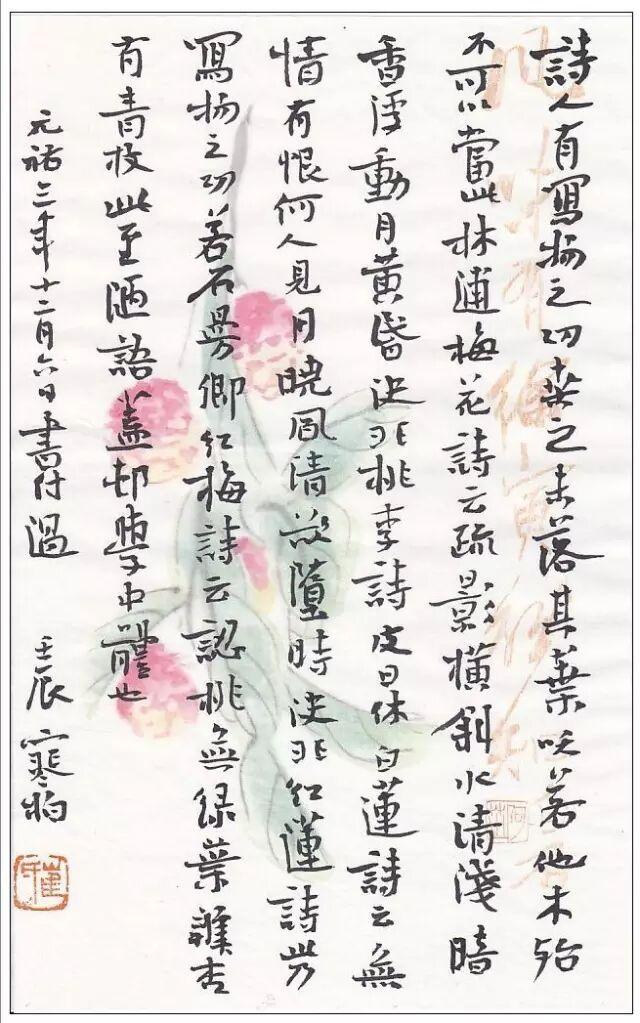 詩人有寫物之功桒之未落其葉沃若他木殆
不可以當此林逋梅花詩云疏影橫斜水清淺暗
香浮動月黃昏決非桃李詩皮日休白蓮詩云無
情有恨何人見月曉風清欲墮時決非紅蓮詩此乃
寫物之功若石曼卿紅梅詩云認桃無綠葉辨杏
有青枝此至陋語蓋邨學中體也
元祐三年十二月六日書付過 壬辰 寒